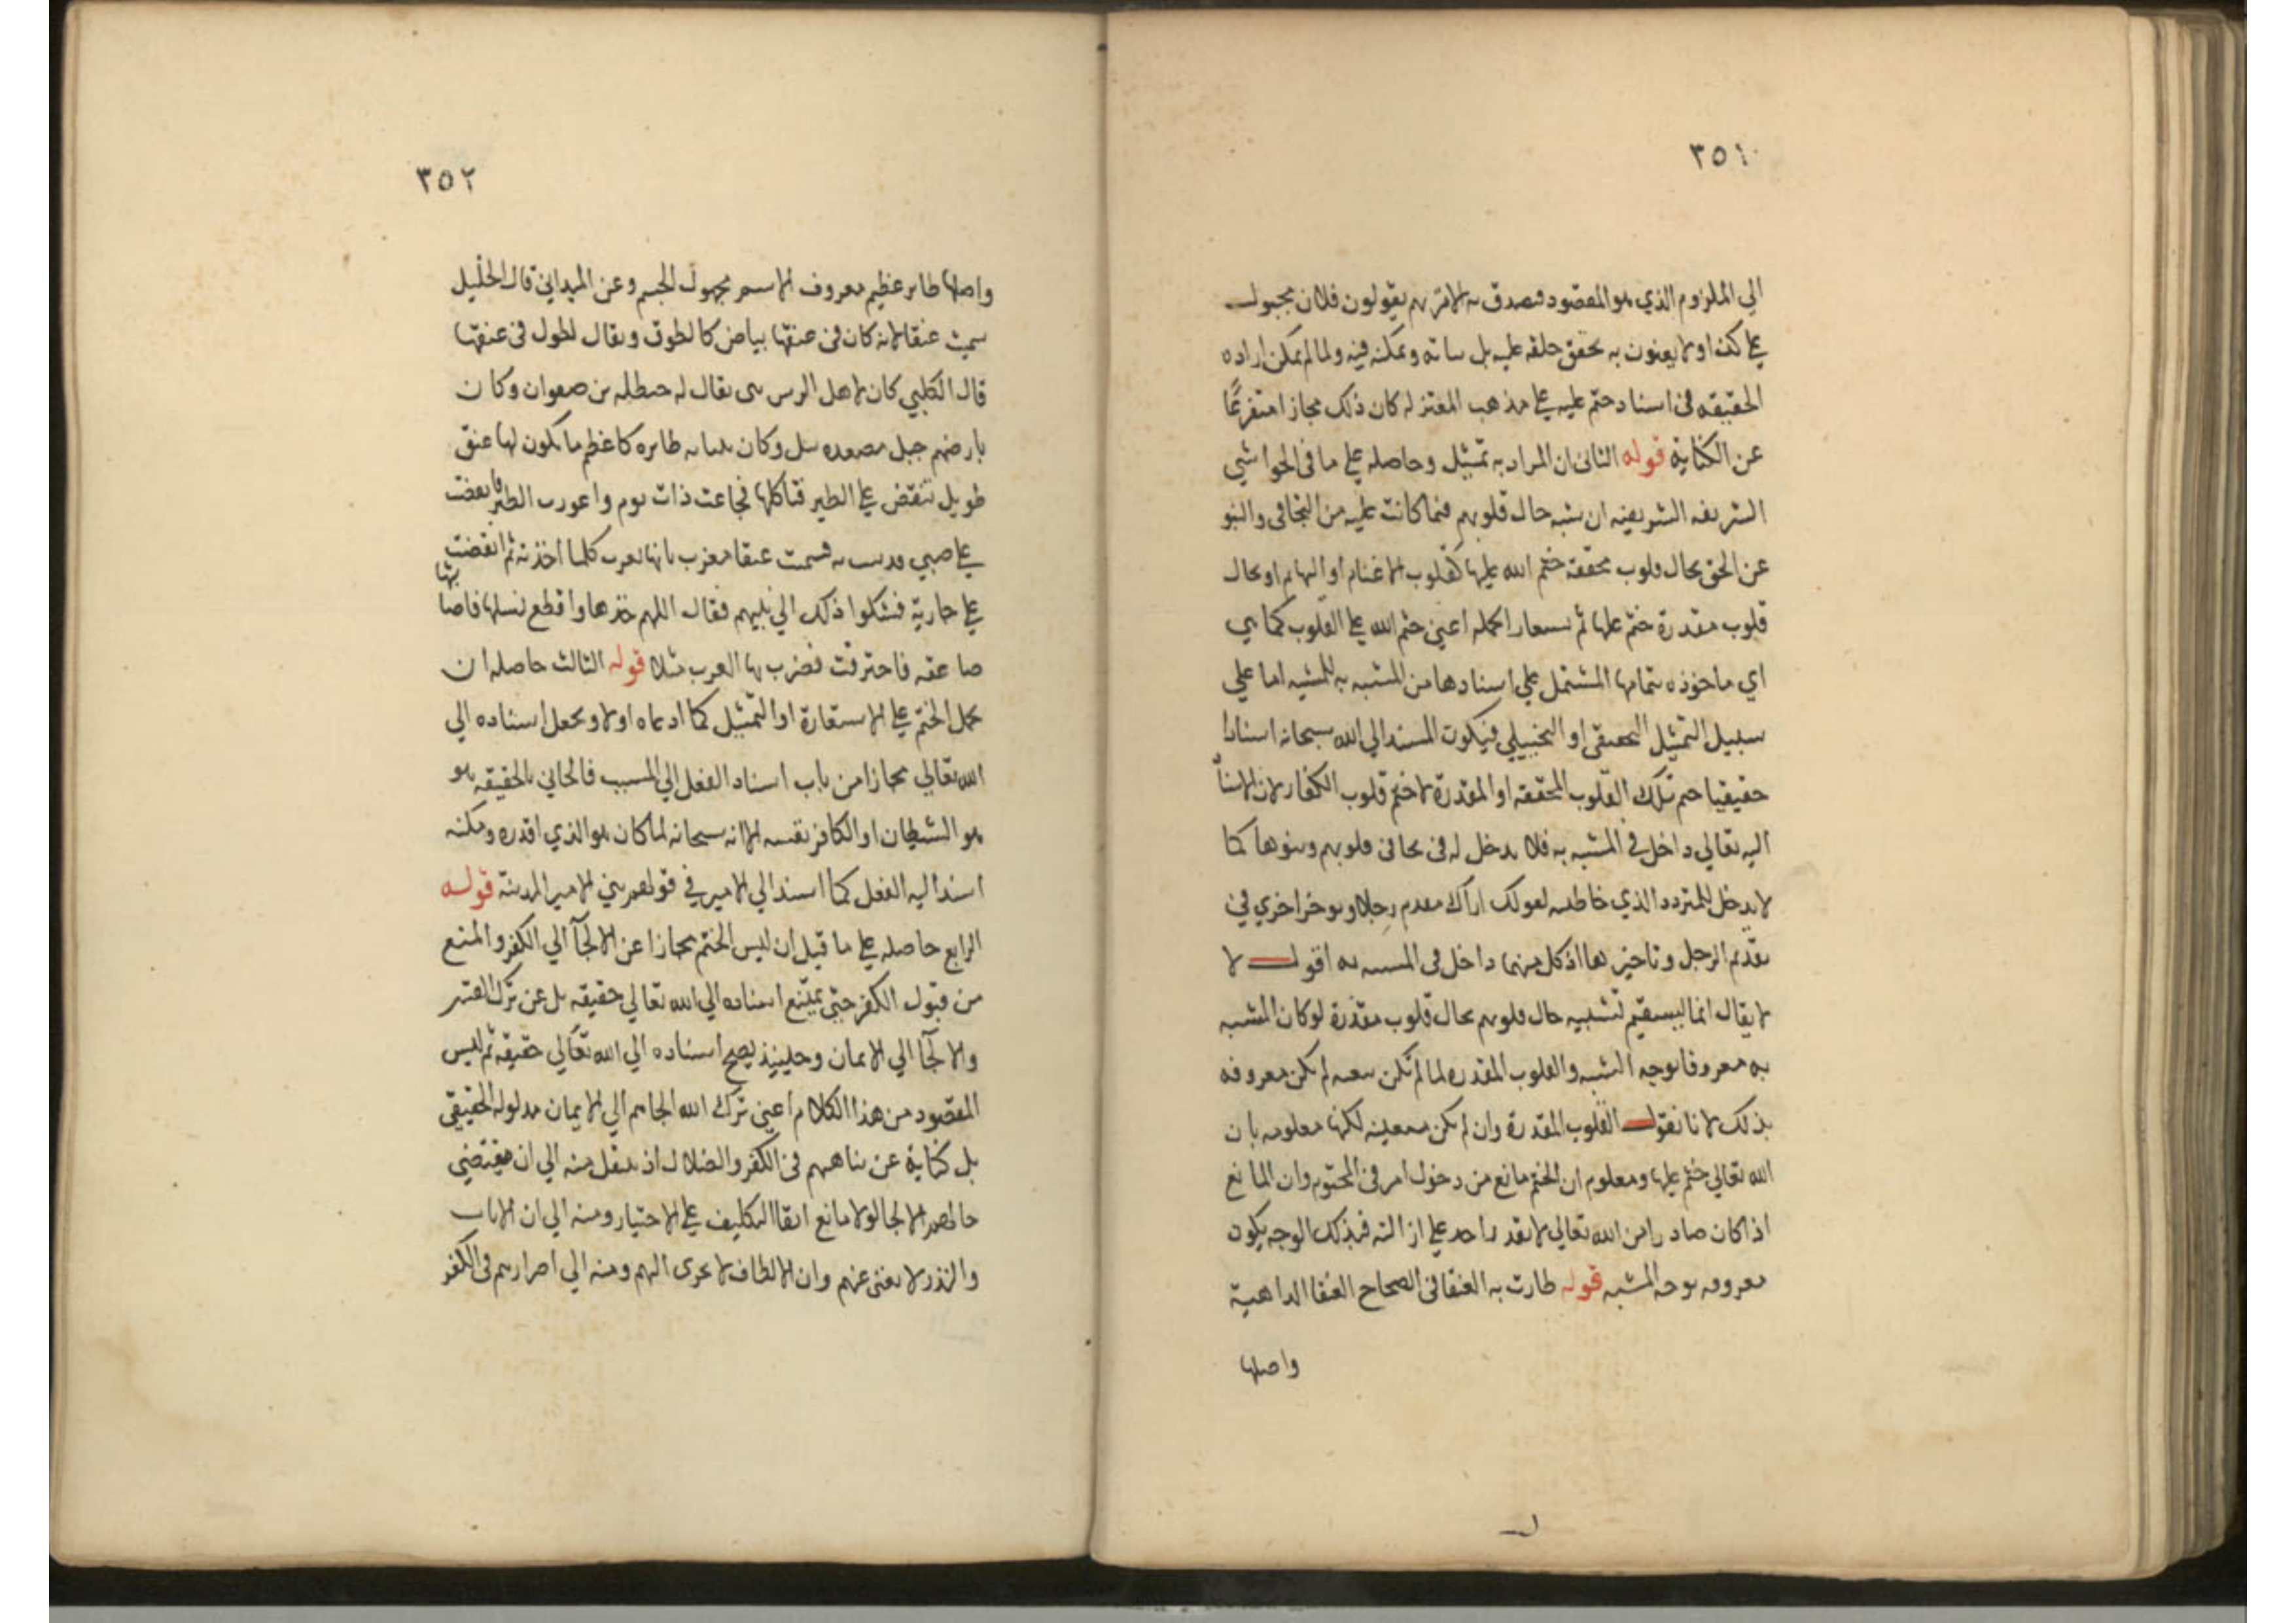 ٣٥١
الي الملزوم الذي هو المقصود فصدق به الا ترهم يقولون فلان مجبول
علي كذا ولا يعنون به تحقق خلقه عليه بل ثباته وتمكنه فيه ولما لم يمكن اراده
الحقيقه في اسناد ختم عليه علي مذهب المعتزله كان ذلك مجازا متفرعا
عن الكناية قوله الثاني ان المراد به تمثيل وحاصله علي ما في الحواشي
الشريفه الشريفيه ان يشبه حال قلوبهم فيما كانت عليه من التجافي والنبو
عن الحق بحال قلوب محققه ختم الله عليها كقلوب الاغنام او البهايم او بحال
قلوب مقدرة ختم عليها ثم يستعار الجمله اعني ختم الله علي القلوب كما هي
اي ماخوذه بتمامها المشتمل علي اسنادها من المشبه به للمشبه اما علي
سبيل التمثيل التحقيقي او التخييلي فيكون المسند الي الله سبحانه اسنادا
حقيقيا ختم تلك القلوب المحققه او المقدرة لا ختم قلوب الكفار لان الاسناد
اليه تعالي داخل في المشبه به فلا يدخل له في تجافي قلوبهم ونبوها كما
لا يدخل للمتردد الذي خاطبته بقولك اراك تقدم رجلا وتوخر اخري في
تقديم الرجل وتاخيرها اذ كل منهما داخل في المشبه به اقول لا
لا يقال انما يستقيم تشبيه حال قلوبهم بحال قلوب مقدرة لو كان المشبه
به معروفا بوجه الشبه والقلوب المقدره لما لم تكن لم تكن معروفه
بذلك لانا نقول القلوب المقدرة وان لم تكن معينه لكنها معلومه بان
الله تعالي ختم عليها ومعلوم ان الختم مانع من دخول امر في المختوم وان المانع
اذا كان صادرا من الله تعالي لا يقدر احد علي ازالته فبذلك الوجه يكون
معروفه بوجه المشبه قوله طارت به العنقا في الصحاح العنقا الداهية
واصلها
٣٥٢
واصلها طاير عظيم معروف الاسم مجهول الجسم وعن الميداني قال الخليل
سميت عنقا لانه كان في عنقها بياض كالطوق ويقال لطول في عنقها
قال الكلبي كان لاهل الرس نبي يقال له حنظله بن صفوان وكان
بارضهم جبل مصعده ميل وكان طايره كاعظم ما يكون لها عنق
طويل تنقض علي الطير فتاكلها فجاعت ذات يوم واعوزت الطير فانقضت
علي صبي فذهبت به فسميت عنقا مغرب بانها تغرب كلما اخذته ثم انقضت
علي جارية فشكوا ذلك الي نبيهم فقال اللهم خذها واقطع نسلها فاصابتها
صاعقه فاحترقت فضرب بها العرب مثلا قوله الثالث حاصله ان
يحمل الختم علي الاستعارة او التمثيل كما ادعاه اولا ويجعل اسناده الي
الله تعالي مجازا من باب اسناد الفعل الي المسبب فالجاني بالحقيقه هو
هو الشيطان او الكافر بنفسه الا انه سبحانه لما كان هو الذي اقدره ومكنه
اسند اليه الفعل كما اسند الي الامير في قولهم بني الامير المدينة قوله
الرابع حاصله علي ما قيل ان ليس الختم مجازا عن الالجآ الي الكفر والمنع
من قبول الكفر حتي يمتنع اسناده الي الله تعالي حقيقه بل عن ترك القسر
والالجآ الي الايمان وحينيذ يصح اسناده الي الله تعالي حقيقه ثم ليس
المقصود من هذا الكلام اعني ترك الله الجاهم الي الايمان مدلوله الحقيقي
بل كناية عن تناهيهم في الكفر والضلال اذ ينتقل منه الي ان مقتضي
حالهم الالجا لولا مانع ابقا التكليف علي الاختيار ومنه الي ان الايات
والنذر لا تغني عنهم وان الالطاف لا تجري اليهم ومنه الي اصرارهم في الكفر